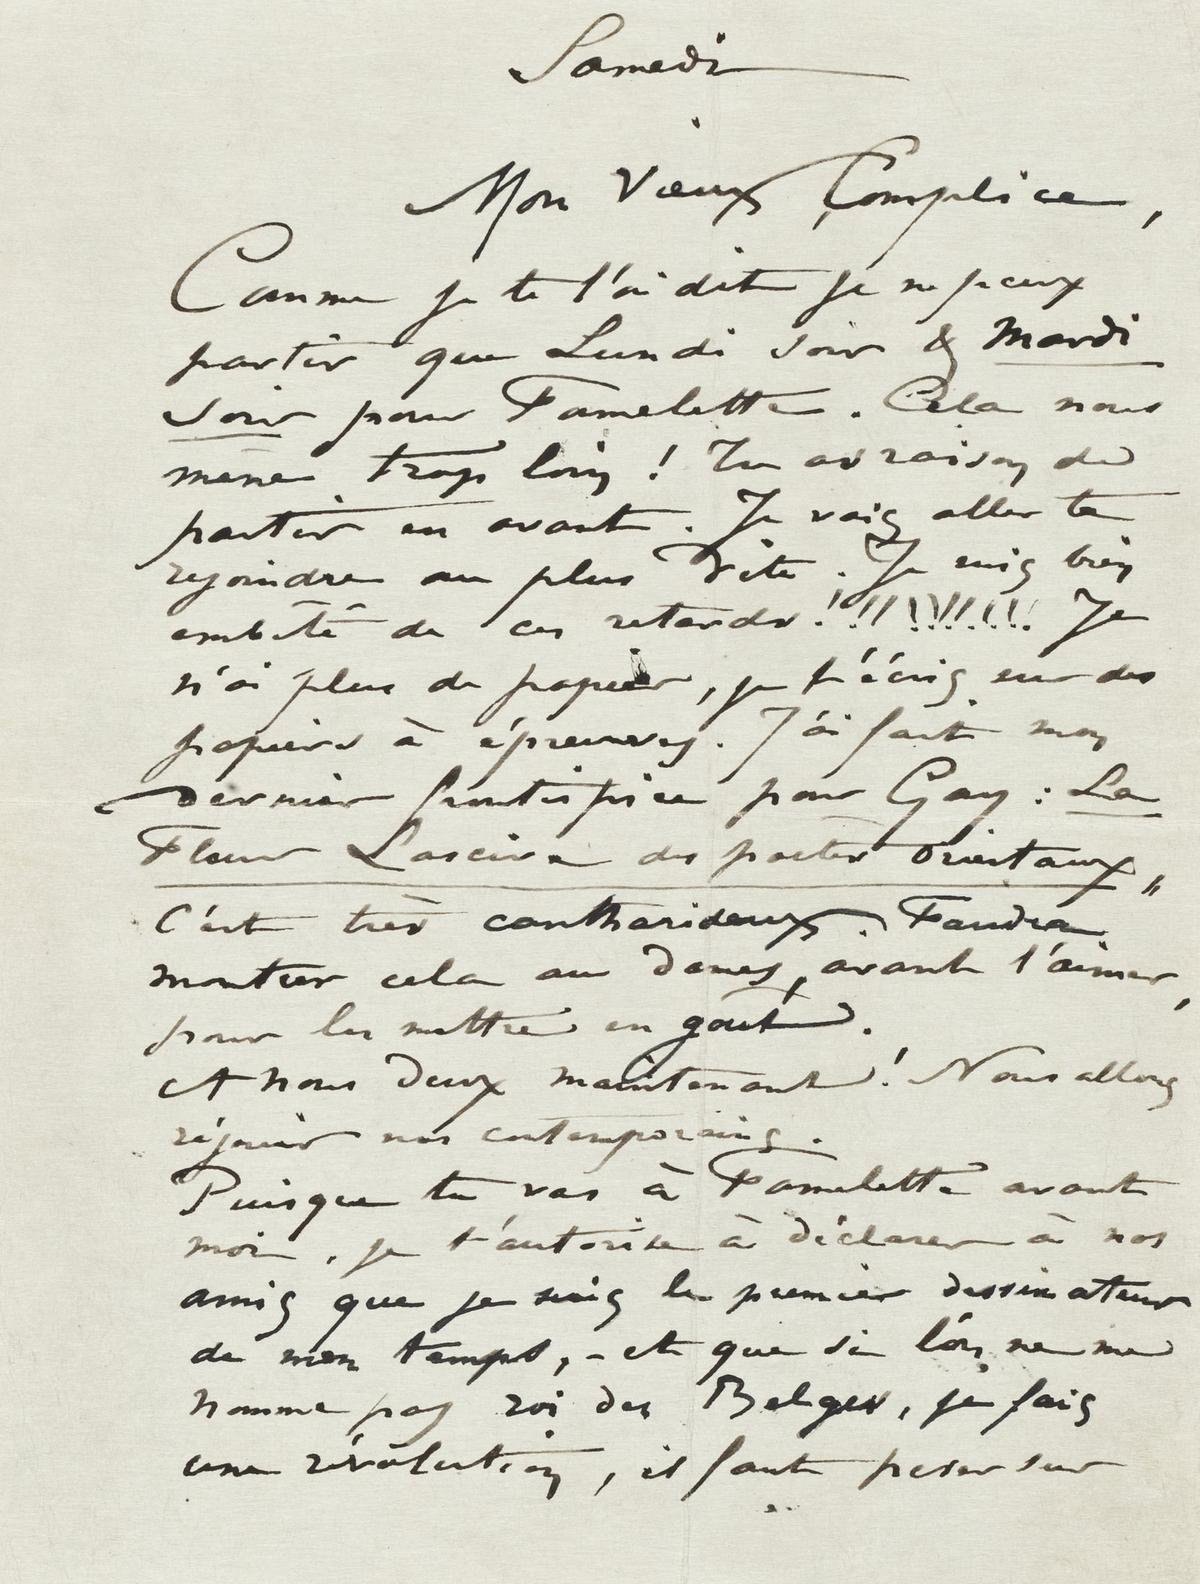 Samedi
Mon Vieux Complice,
Comme je te l'ai dit je ne peux
partir que Lundi soir & Mardi
soir pour Famelette. Cela nous
mène trop loin ! Tu as raison de
partir en avant. Je vais aller te
rejoindre au plus vite. Je suis bien
embêté de ces retards !!!!!!!!!! Je
n'ai plus de papier, je t'écris sur des
papiers à épreuves. J'ai fait mon
dernier frontispice pour Gay : La
Fleur Lascive des poètes Orientaux "
C'est très cantharideux. Faudra
montrer cela au dames, avant l'aimer,
pour les mettre en goût.
A nous deux maintenant ! Nous allons
réjouir nos contemporains.
Puisque tu vas à Famelette avant
moi, je t'autorise à déclarer à nos
amis que je suis le premier dessinateur
de mon temps, - et que si l'on ne me
nomme pas roi des Belges, je fais
une révolution, il faut peser sur